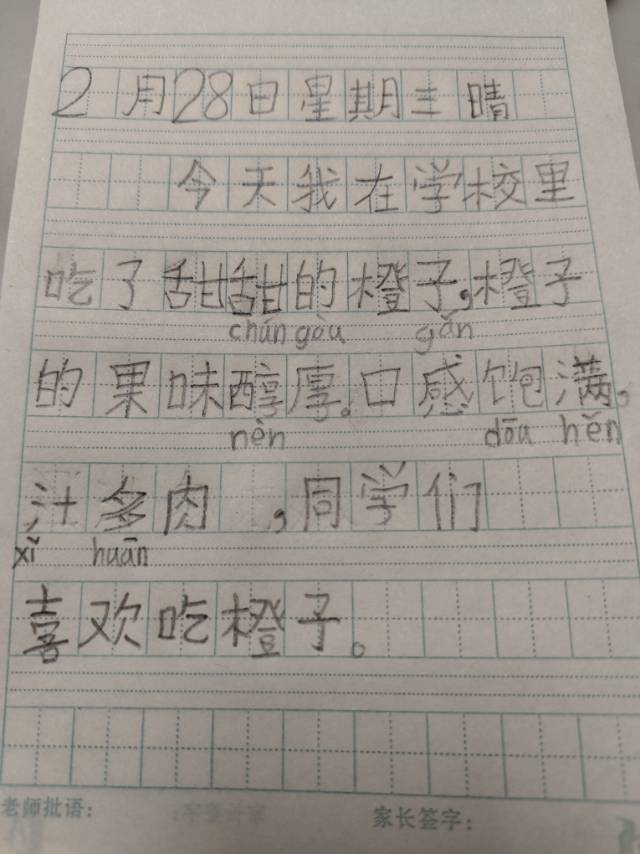 2月28日星期三 晴
今天我在学校里
吃了甜甜的橙子,橙子
chún gòu gǎn
的果味醇厚。口感饱满,
nèn dōu hěn
汁多肉 ,同学们
xǐ huān
喜欢吃橙子。
老师批语:
家长签字: